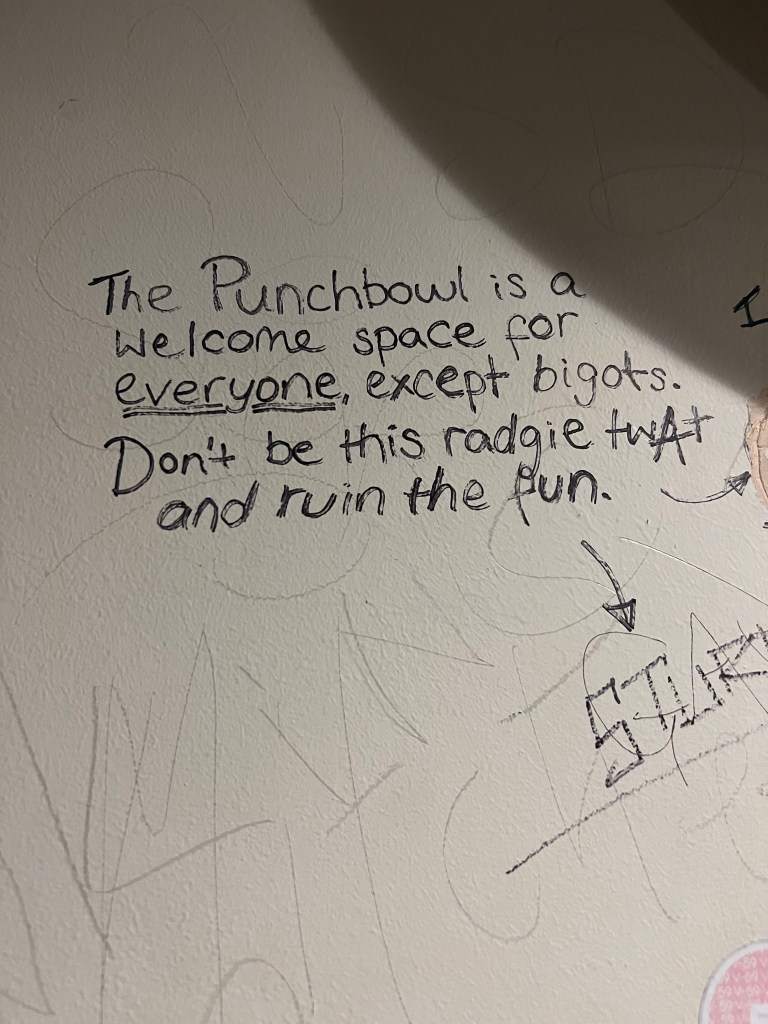 The Punchbowl is a
welcome space for
everyone, except bigots.
Don't be this radgie twAt
and ruin the fun.
I